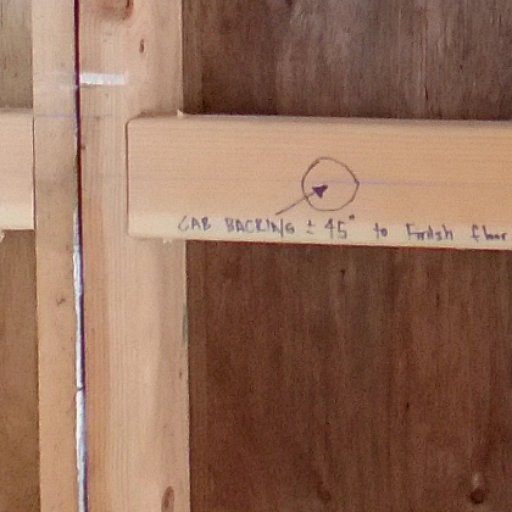 CAB BACKING ± 45" to Finish floor